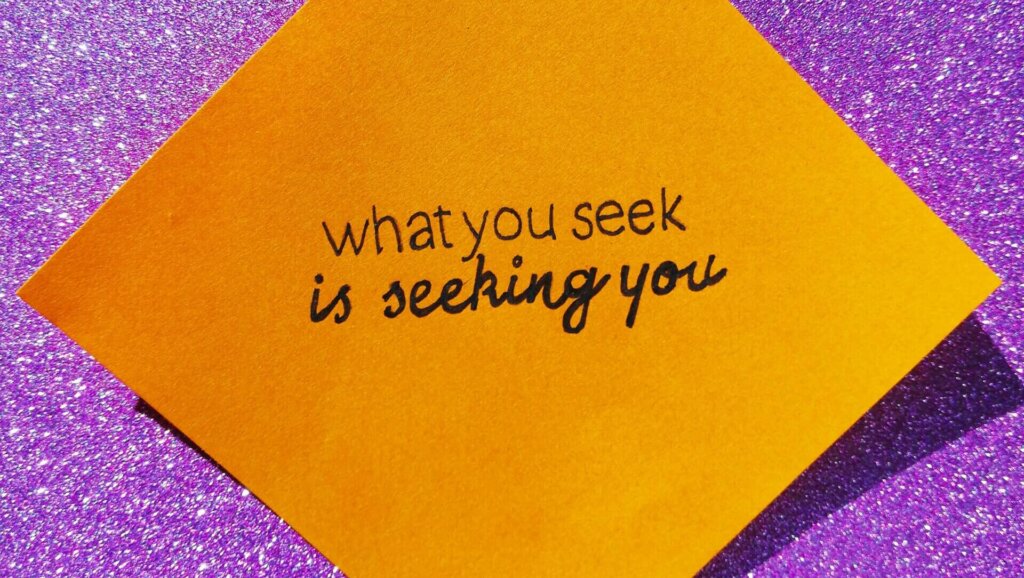 what you seek
is seeking you